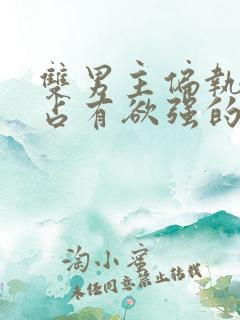 雙男主偏執
占有欲强的
淘小蜜
未任同意禁止转载